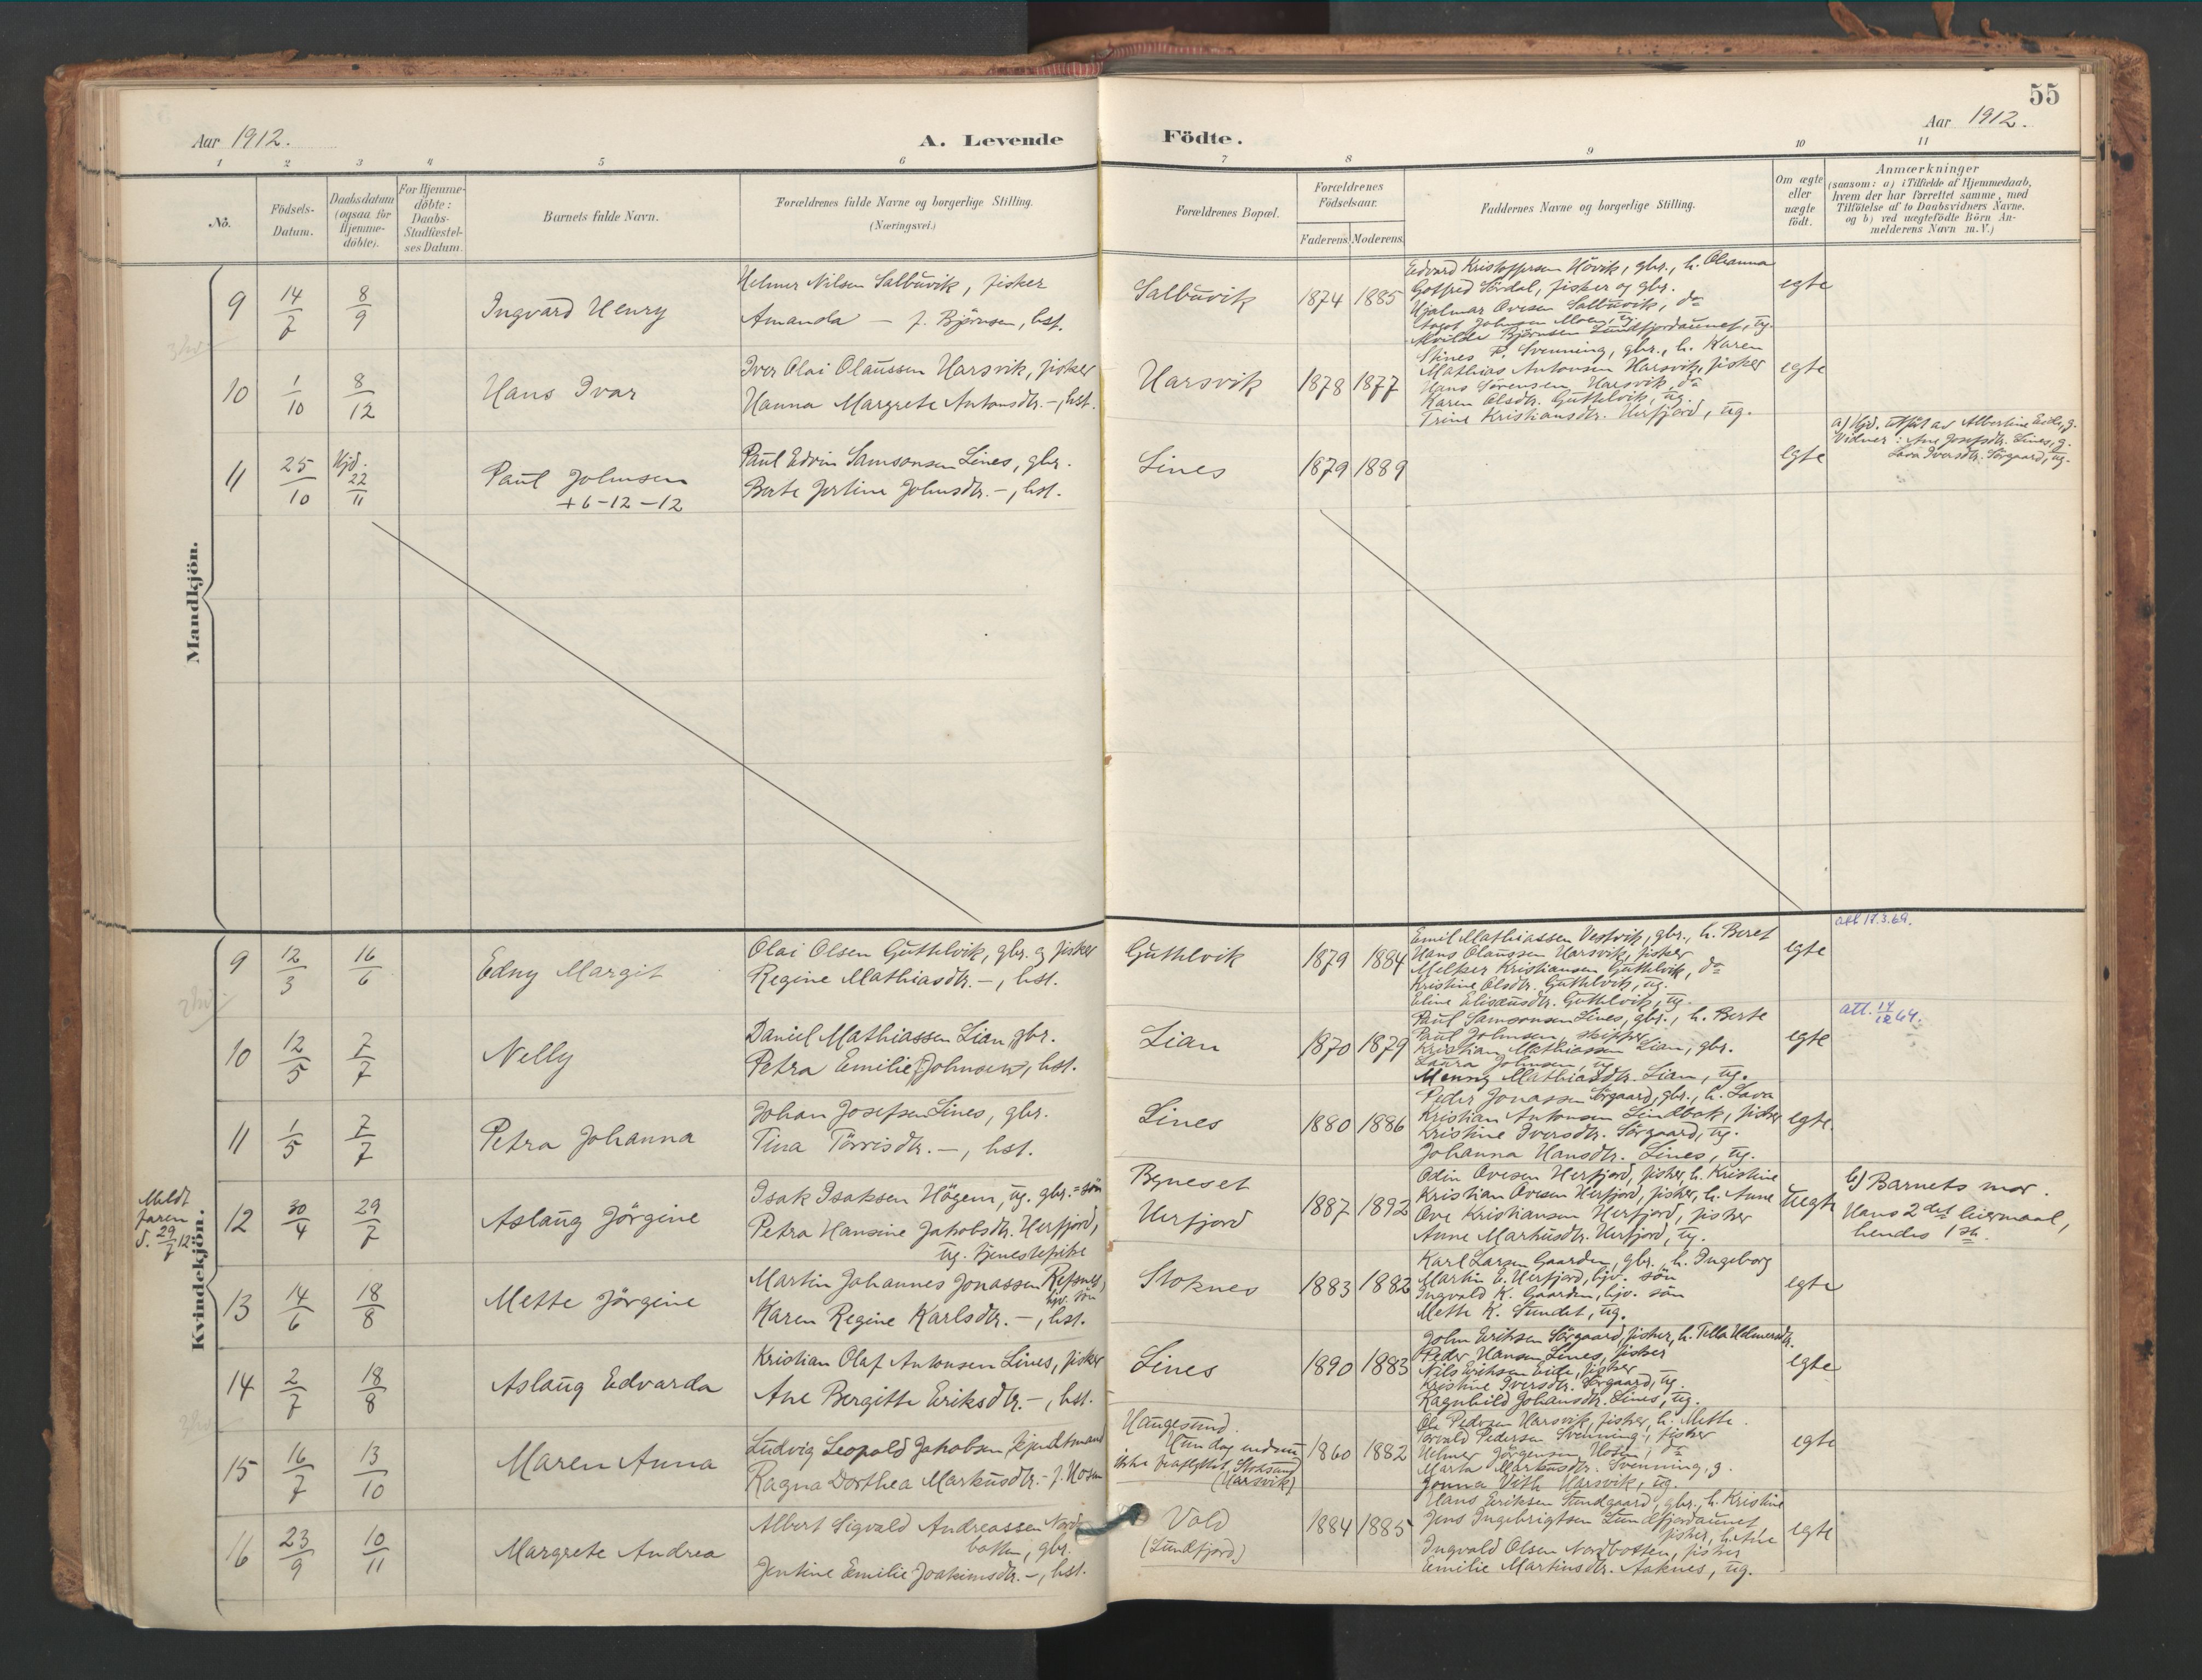 55
Aar 1912.
A. Levende Födte.
Aar 1912.
1 2 3 4 5 6 7 8 9 10 11
No.
Födsels-
Datum.
Daabsdatum
(ogsaa for
Hjemme-
döbte).
For Hjemme-
döbte:
Daabs-
Stadfæstel-
ses Datum.
Barnets fulde Navn.
Forældrenes fulde Navne og borgerlige Stilling.
(Næringsvei.)
Forældrenes Bopæl.
Forældrenes
Födselsaar.
Faderens. Moderens.
Faddernes Navne og borgerlige Stilling.
Om ægte
eller
uægte
födt.
Anmærkninger
(saasom: a) i Tilfælde af Hjemmedaab,
hvem der har forrettet samme, med
Tilföielse af to Daabsvidners Navne,
og b) ved uegtefödte Börn An-
melderens Navn m.V.)
Mandkjön.
9
14/7
8/9
Ingvard Henry
Helmer Nilsen Salbuvik, fisker
Amanda — f. Björnsen, hst.
Salbuvik
1874 1885
Edvard Kristoffersen Hövik, gbr., h. Oleanna
Gotfred Sördal, fisker og gbr.
Hjalmar Ovesen Salbuvik, do
Johnsen Moen, ug.
Björnsen Sundfjordaunet, ug.
egte
10
1/10
8/12
Hans Ivar
Iver Olai Olaussen Harsvik, fisker
Hanna Margrete Antonsdtr. —, hst.
Harsvik
1878 1877
Stines P. Svenning, gbr., h. Karen
Mathias Antonsen Harsvik, fisker
Hans Sörensen Harsvik, do
Karen Olsdtr. Guthlvik, ug.
Trine Kristiansdtr. Herfjord, ug.
egte
11
25/10
Hjd.
22/11
Paul Johnsen
+ 6-12-12
Paul Edvin Samsonsen Lines, gbr.
Berte Jertine Johnsdtr. —, hst.
Lines
1879 1889
egte
a) Hjd. utfört av Albertine Eide, g.
Vidner: Ane Josefsdtr. Lines, g.
Lava Iversdtr. Sörgaard, ug.
Kvindekjön.
9
12/3
16/6
Edny Margit
Olai Olsen Guthlvik, gbr. og fisker
Regine Mathiasdtr. —, hst.
Guthlvik
1879 1884
Emil Mathiassen Vestvik, gbr., h. Beret
Hans Olaussen Harsvik, fisker
Meltser Kristiansen Guthlvik, do
Kristine Olsdtr. Guthlvik, ug.
Eline Eliseusdtr. Guthlvik, ug.
egte
att 17.3.69.
10
12/5
7/7
Nelly
Daniel Mathiassen Lian, gbr.
Petra Emilie Johnsen, hst.
Lian
1870 1879
Paul Samsonsen Lines, gbr., h. Berte
Paul Johnsen skipper
Kristian Mathiassen Lian, gbr.
Laura Johnsen, ug.
Menny Mathiasdtr. Lian, ug.
egte
att. 14/12 64.
11
1/5
7/7
Petra Johanna
Johan Josefsen Lines, gbr.
Tina Törrisdtr. —, hst.
Lines
1880 1886
Peder Jonassen Sörgaard, gbr., h. Lava
Kristian Antonsen Lindbak, fisker
Kristine Iversdtr. Sörgaard, ug.
Johanna Hansdtr. Lines, ug.
egte
Meldt
faren
d. 29/7 12
12
30/4
29/7
Aslaug Jörgine
Isak Isaksen Högem, ug. gbr.=sön
Petra Hansine Jakobsdtr. Herfjord,
ug. tjenestepike
Byneset
Herfjord
1887 1892
Odin Ovesen Herfjord, fisker, h. Kristine
Kristian Ovesen Herfjord, fisker, h. Anne
Ove Kristiansen Herfjord, fisker
Anne Markusdtr. Herfjord, ug.
uegte
b) Barnets mor.
Hans 2det leiermaal,
hendes 1ste.
13
14/6
18/8
Mette Jörgine
Martin Johannes Jonassen Refsnes,
hjv. sön
Karen Regine Karlsdtr. —, hst.
Stoknes
1883 1882
Karl Larsen Gaarden, gbr., h. Ingeborg
Martin E. Herfjord, hjv. sön
Ingvald K. Gaarden, hjv. sön
Mette K. Sundet, ug.
egte
14
2/7
18/8
Aslaug Edvarda
Kristian Olaf Antonsen Lines, fisker
Ane Bergitte Eriksdtr. —, hst.
Lines
1890 1883
John Eriksen Sörgaard, fisker, h. Tella Helmersdtr.
Peder Hansen Lines, fisker
Nils Eriksen Eide, fisker
Kristine Iversdtr. Sörgaard, ug.
Ragnhild Johansdtr. Lines, ug.
egte
15
16/7
13/10
Maren Anna
Ludvig Leopold Jakobsen, kjendtmand
Ragna Dorthea Markusdtr. — f. Hosen
Haugesund.
Hun dog endnu
ikke fraflyttet Stoksund
(Harsvik)
1860 1882
Ole Pedersen Harsvik, fisker, h. Mette.
Torvald Pedersen Svenning, fisker
Helmer Jörgensen Hosen, do
Marta Markusdtr. Svenning, g.
Jonna Vith Harsvik, ug.
egte
16
23/9
10/11
Margrete Andrea
Albert Sigvald Andreassen Nord-
botten, gbr.
Jentine Emilie Joakimsdtr. —, hst.
Vold
(Sundfjord)
1884 1885
Hans Eriksen Sundgaard, gbr., h. Kristine
Jens Ingebrigtsen Sundfjordaunet
fisker, h. Ane
Ingvald Olsen Nordbotten, fisker
Emilie Martinsdtr. Aaknes, ug.
egte